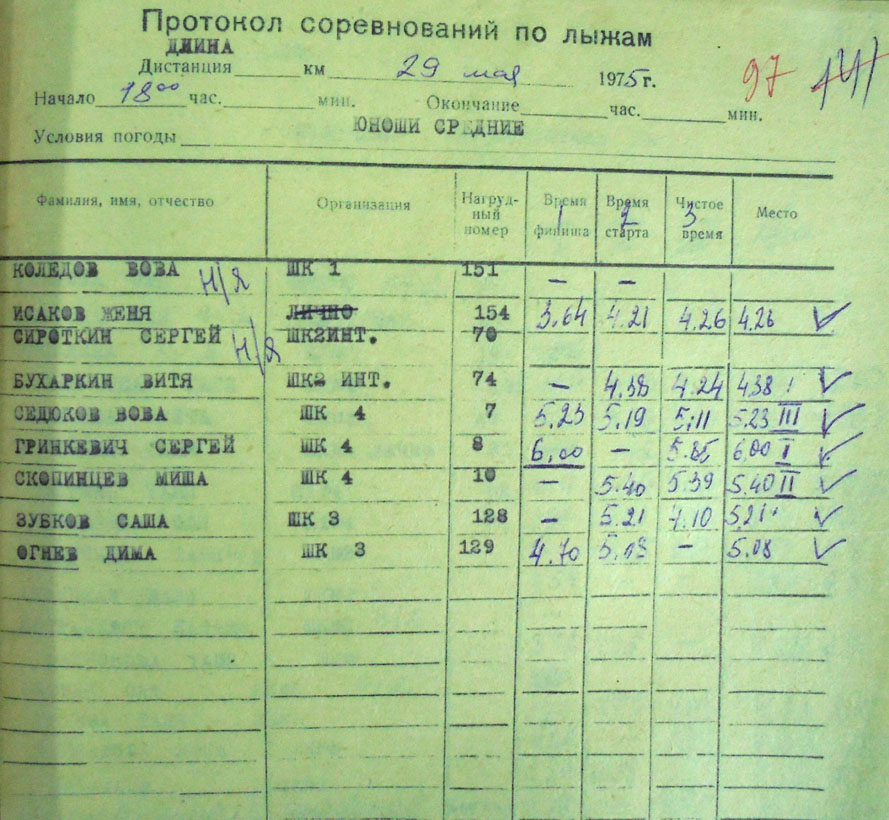 Протокол соревнований по лыжам
ДЛИНА
Дистанция км 29 мая 1975 г.
97
Начало 18 00 час. мин. Окончание час. мин.
Условия погоды ЮНОШИ СРЕДНИЕ
Фамилия, имя, отчество Организация Нагруд-ный номер Время финиша 1 Время старта 2 Чистое время 3 Место
КОЛЕДОВ ВОВА н/я ШК 1 151 — —
ИСАКОВ ЖЕНЯ ЛИЧНО 154 3.64 4.21 4.26 4.26
СИРОТКИН СЕРГЕЙ н/я ШК2ИНТ. 70
БУХАРКИН ВИТЯ ШК2 ИНТ. 74 — 4.38 4.24 4.38
СЕДЮКОВ ВОВА ШК 4 7 5.23 5.19 5.11 5.23 III
ГРИНКЕВИЧ СЕРГЕЙ ШК 4 8 6.00 — 5.85 6.00 I
СКОПИНЦЕВ МИША ШК 4 10 — 5.40 5.39 5.40 II
ЗУБКОВ САША ШК 3 128 — 5.21 4.10 5.21
ОГНЕВ ДИМА ШК 3 129 4.70 5.08 — 5.08